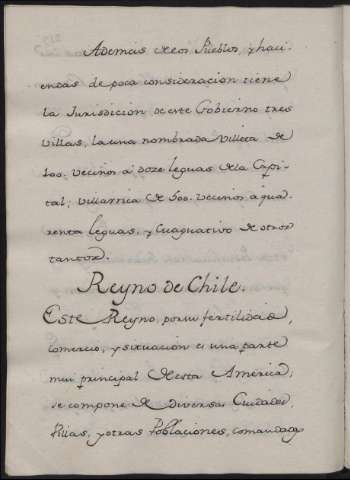 Ademas de los Pueblos, y haci-
endas de poca consideracion tiene
la Jurisdicion de este Gobierno tres
villas, la una nombrada Villeta de
100. vecinos á doze leguas de la Capi-
tal; Villarrica de 500. vecinos á qua-
renta leguas, y Cuaguativo de otros
tantos.
Reyno de Chile.
Este Reyno, por su fertilidad,
comercio, y situacion es una parte
mui principal de esta America;
se compone de diversas Ciudades,
Villas, y otras Poblaciones, comandadas